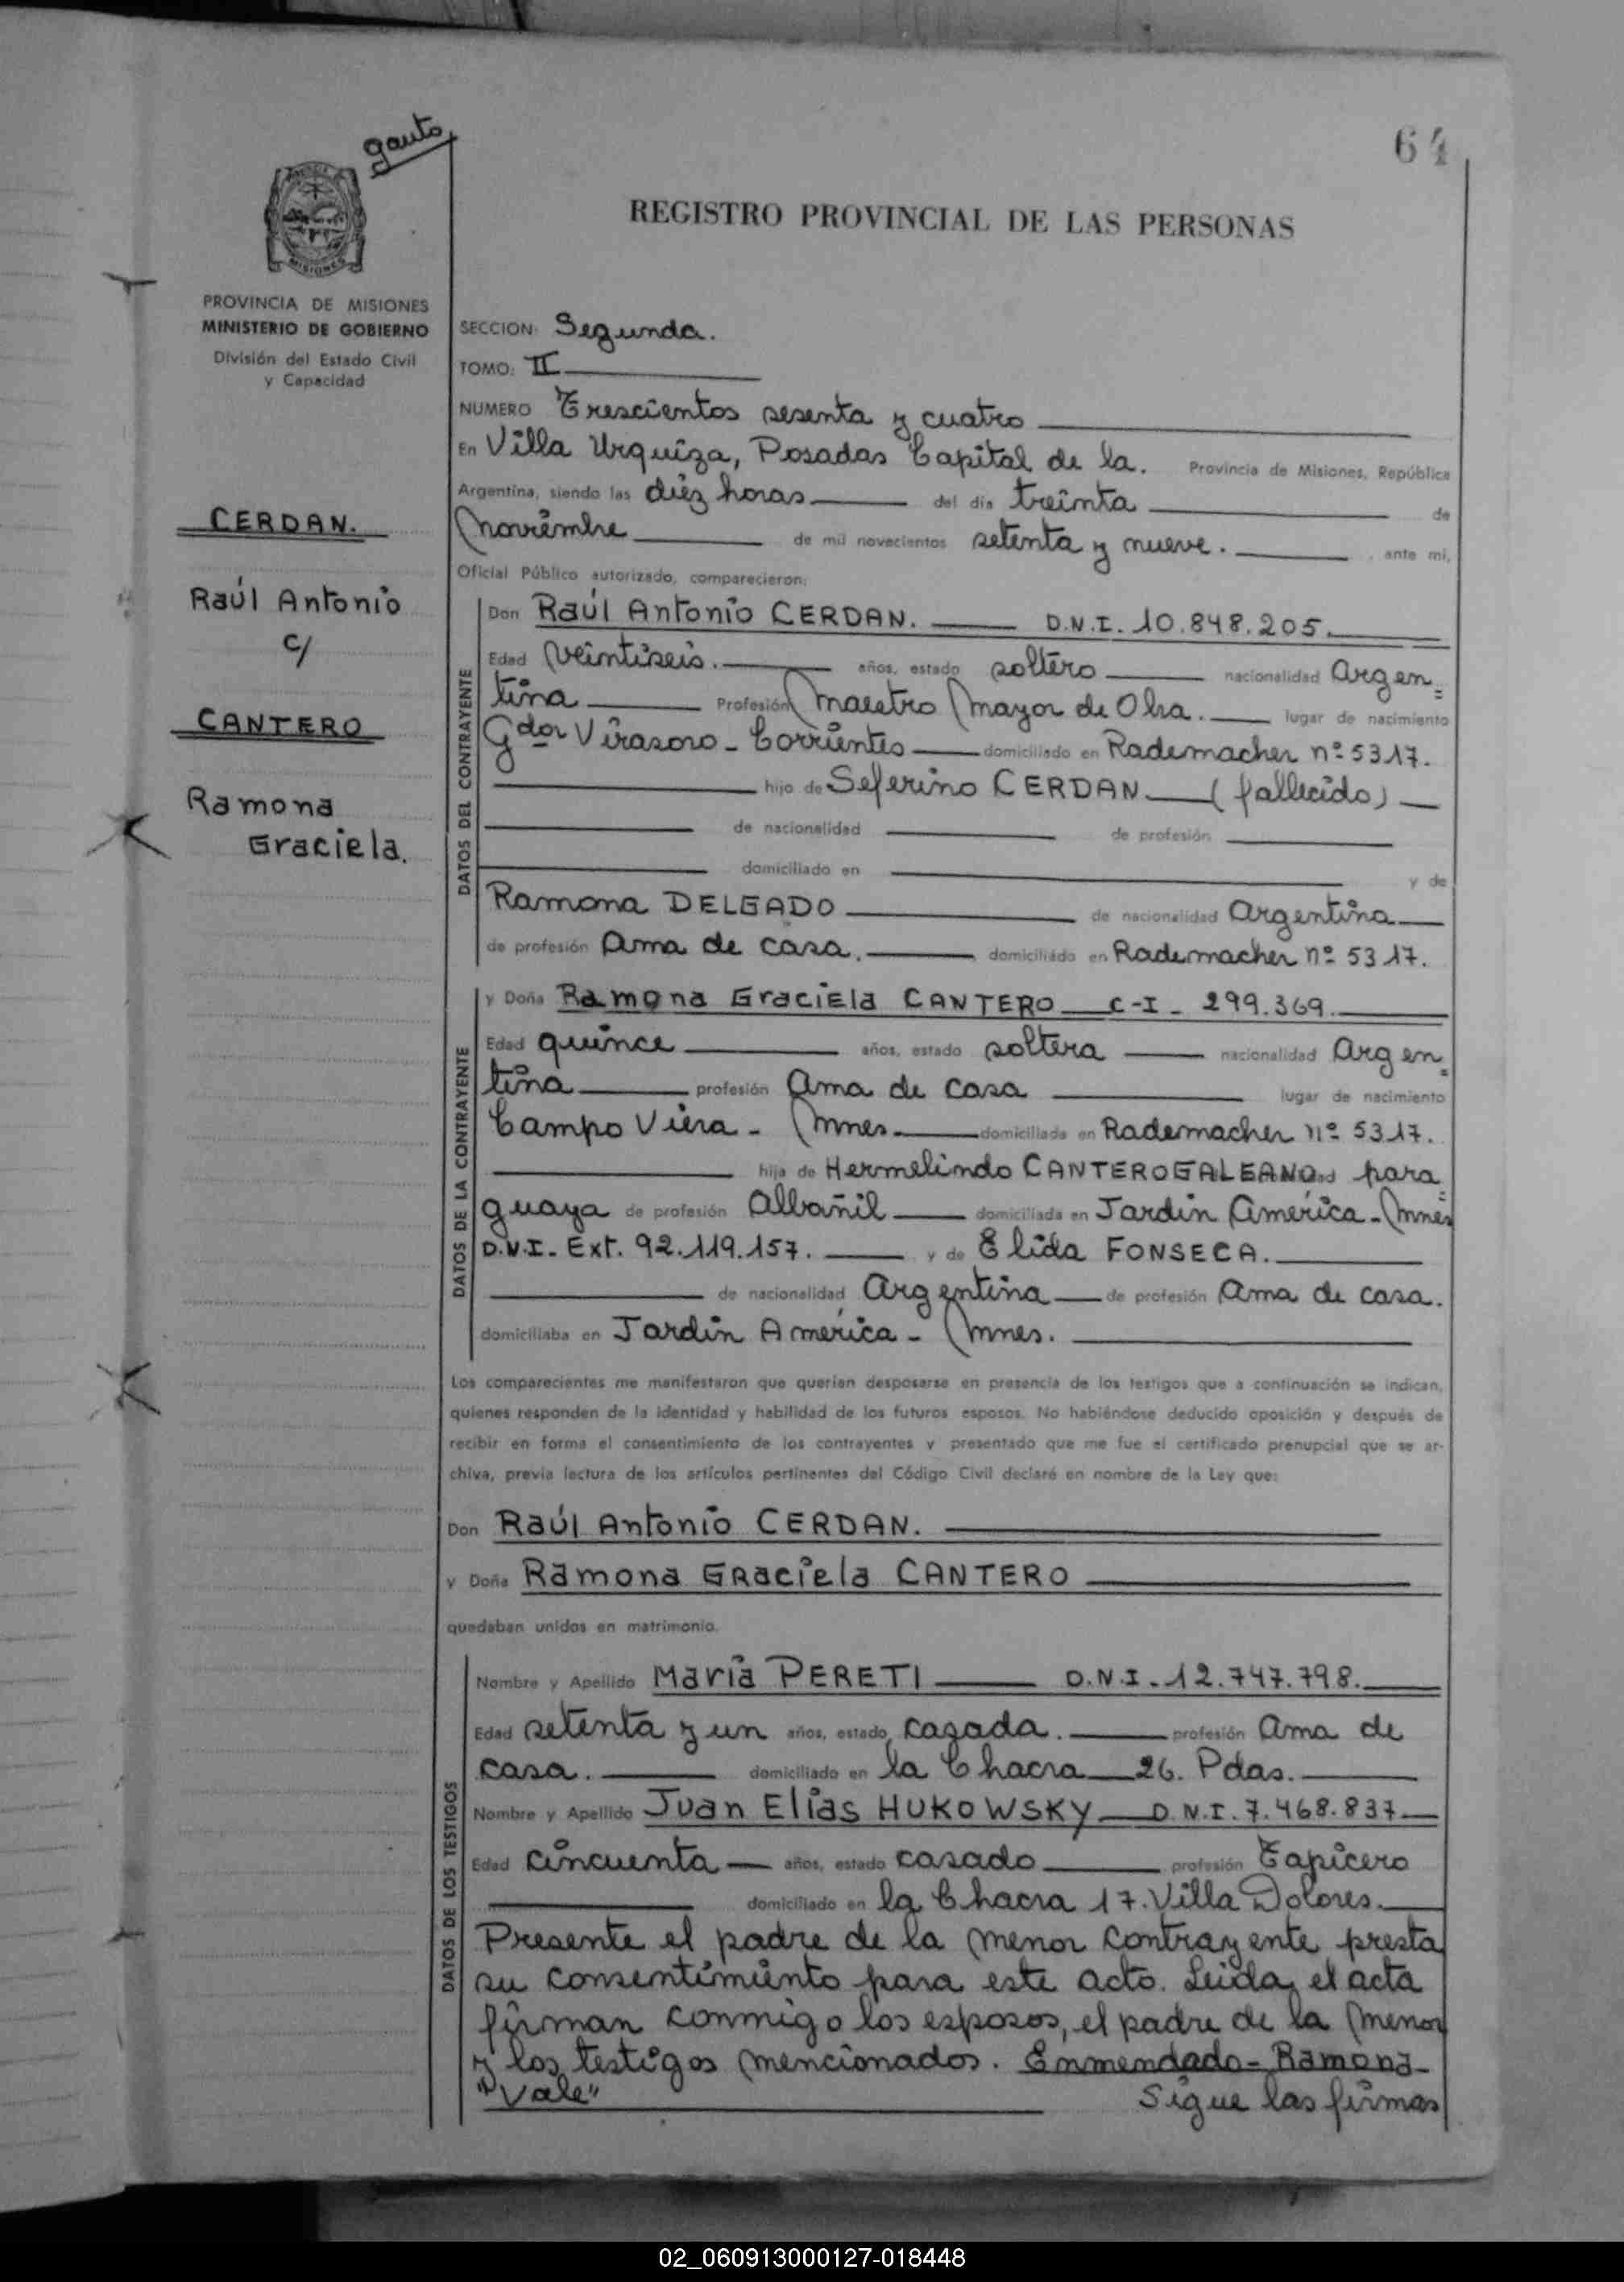 gauto
64
REGISTRO PROVINCIAL DE LAS PERSONAS
MISIONES
PROVINCIA DE MISIONES
MINISTERIO DE GOBIERNO
División del Estado Civil
y Capacidad
CERDAN.
Raúl Antonio
c/
CANTERO
Ramona
Graciela.
SECCION: Segunda.
TOMO: II
NUMERO Trescientos sesenta y cuatro
En Villa Urquiza, Posadas Capital de la. Provincia de Misiones, República
Argentina, siendo las diez horas del día treinta de
noviembre de mil novecientos setenta y nueve. , ante mi,
Oficial Público autorizado, comparecieron:
DATOS DEL CONTRAYENTE
Don Raúl Antonio CERDAN. D.N.I. 10.848.205.
Edad veintiseis. años, estado soltero nacionalidad Argen=
tina Profesión maestro mayor de Obra. lugar de nacimiento
Gdor Virasoro - Corrientes domiciliado en Rademacher nº 5317.
hijo de Seferino CERDAN (fallecido)
de nacionalidad de profesión
domiciliado en y de
Ramona DELGADO de nacionalidad Argentina
de profesión Ama de casa. domiciliada en Rademacher nº 5317.
DATOS DE LA CONTRAYENTE
y Doña Ramona Graciela CANTERO C-I- 299.369.
Edad quince años, estado soltera nacionalidad Argen=
tina profesión Ama de casa lugar de nacimiento
Campo Viera - Mnes. domiciliada en Rademacher nº 5317.
hija de Hermelindo CANTEROGALEANO para=
guaya de profesión Albañil domiciliada en Jardin America - Mnes
D.N.I. Ext. 92.119.157. y de Elida FONSECA.
de nacionalidad Argentina de profesión Ama de casa.
domiciliaba en Jardin America - Mnes.
Los comparecientes me manifestaron que querían desposarse en presencia de los testigos que a continuación se indican,
quienes responden de la identidad y habilidad de los futuros esposos. No habiéndose deducido oposición y después de
recibir en forma el consentimiento de los contrayentes y presentado que me fue el certificado prenupcial que se ar-
chiva, previa lectura de los artículos pertinentes del Código Civil declaré en nombre de la Ley que:
Don Raúl Antonio CERDAN.
y Doña Ramona Graciela CANTERO
quedaban unidos en matrimonio.
DATOS DE LOS TESTIGOS
Nombre y Apellido María PERETI D.N.I. 12.747.798.
Edad setenta y un años, estado casada. profesión Ama de
casa. domiciliado en la Chacra 26. Pdas.
Nombre y Apellido Juan Elías HUKOWSKY D.N.I. 7.468.837
Edad cincuenta años, estado casado profesión Tapicero
domiciliado en la Chacra 17. Villa Dolores.
Presente el padre de la menor contrayente presta
su consentimiento para este acto. Leida el acta
firman conmigo los esposos, el padre de la menor
y los testigos mencionados. Enmendado - Ramona -
"Vale" Sigue las firmas
02_060913000127-018448